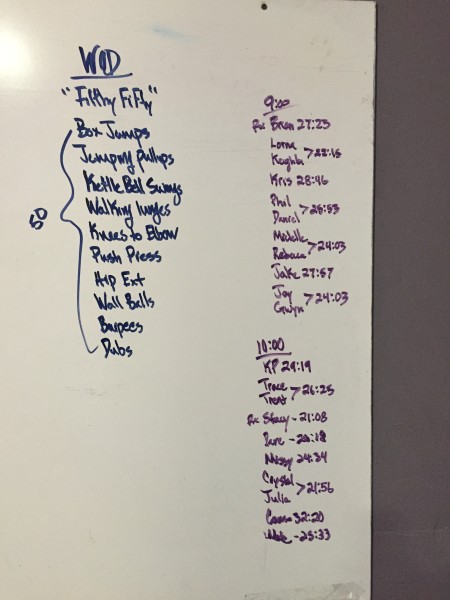 WOD
"Filthy Fifty"
50
Box Jumps
Jumping Pullups
Kettle Bell Swings
Walking lunges
Knees to Elbow
Push Press
Hip Ext
Wall Balls
Burpees
Dubs
9:00
Rx Brian 27:23
Lorna
Kris 28:46
Phil
Daniel
Rebecca >24:03
Jake 27:57
Joy
Gwyn >24:03
10:00
KP 29:19
Trace
Trent >26:25
Rx Stacy - 21:08
Missy 24:34
Crystal
Julia >21:56
32:20
- 25:33